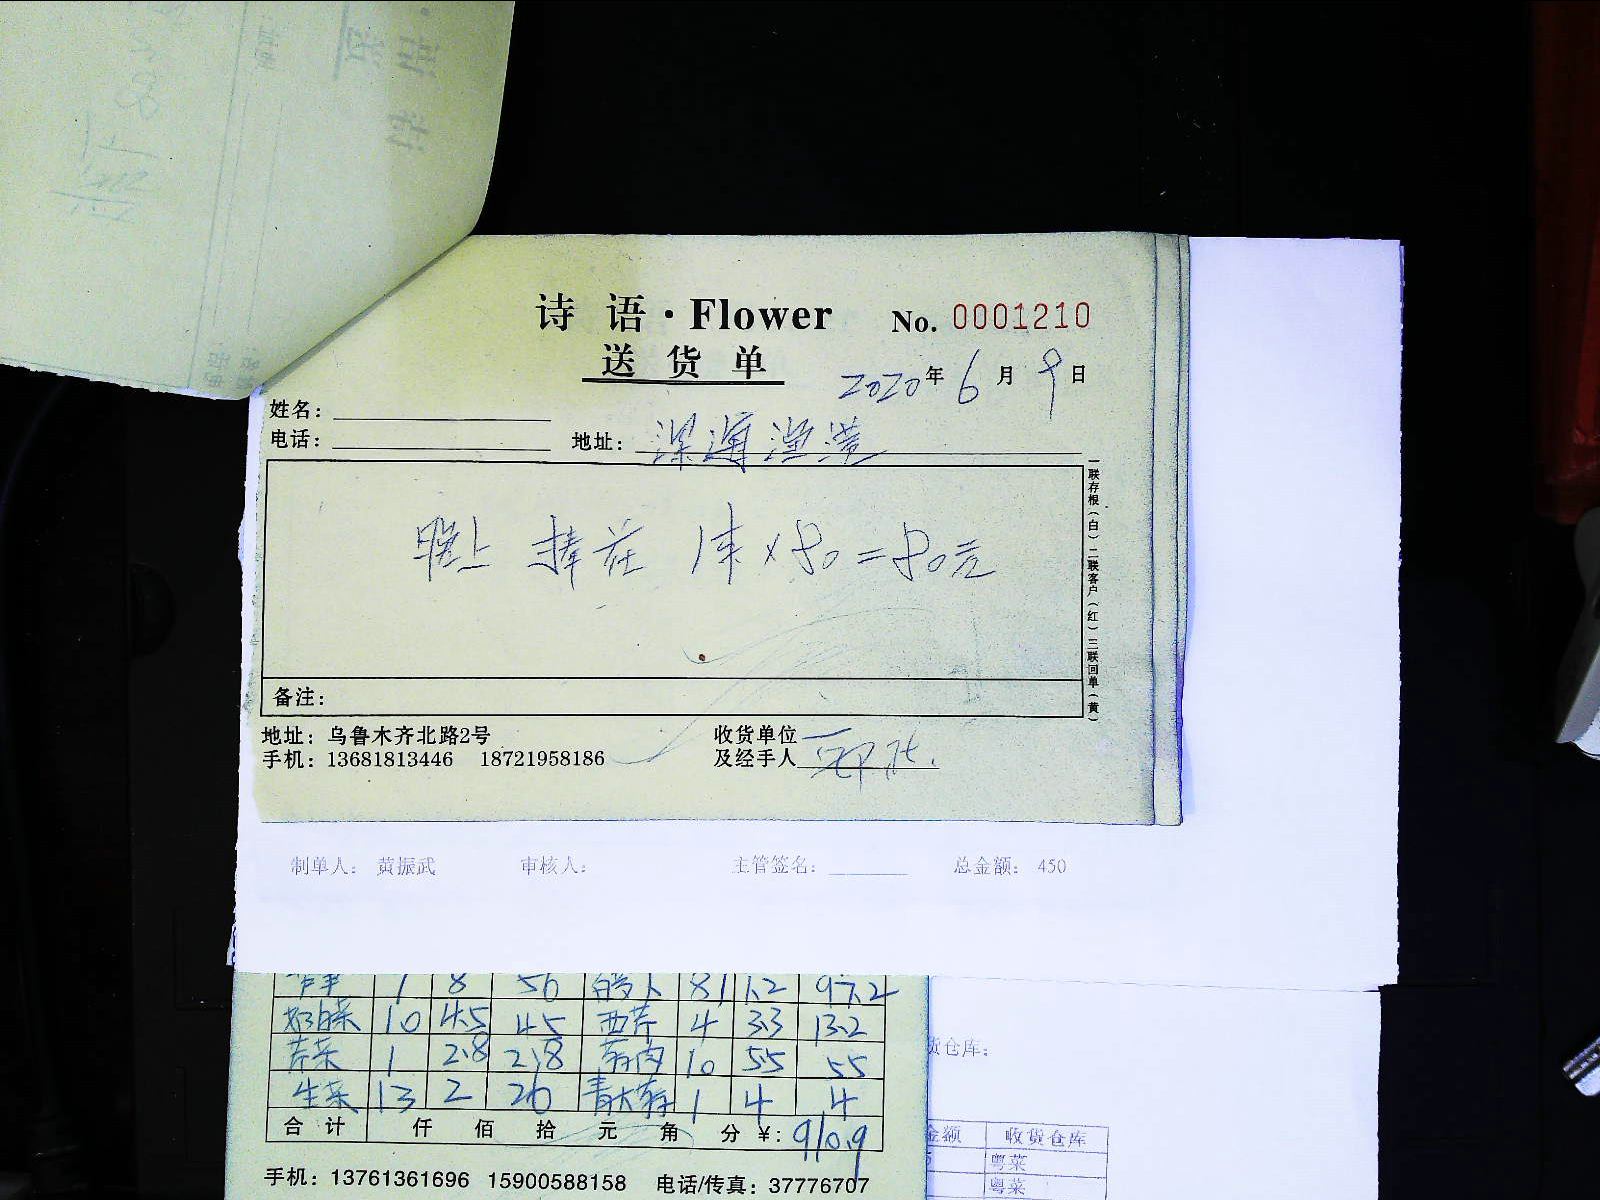 诗 语·Flower No. 0001210
送 货 单
2020年 6 月 9 日
姓名：
电话： 地址： 深海渔港
晚上 捧花 1束×80=80元
备注：
一联存根（白）二联客户（红）三联回单（黄）
地址：乌鲁木齐北路2号 收货单位
手机：13681813446 18721958186 及经手人
制单人： 黄振武 审核人： 主管签名： 总金额： 450
1 8 56 白萝卜 81 1.2 97.2
奶白菜 10 4.5 45 西芹 4 3.3 13.2
芹菜 1 2.8 2.8 10 5.5 55
生菜 13 2 26 1 4 4
合 计 仟 佰 拾 元 角 分 ¥: 910.9
手机：13761361696 15900588158 电话/传真：37776707
货仓库：
金额 收货仓库
粤菜
粤菜